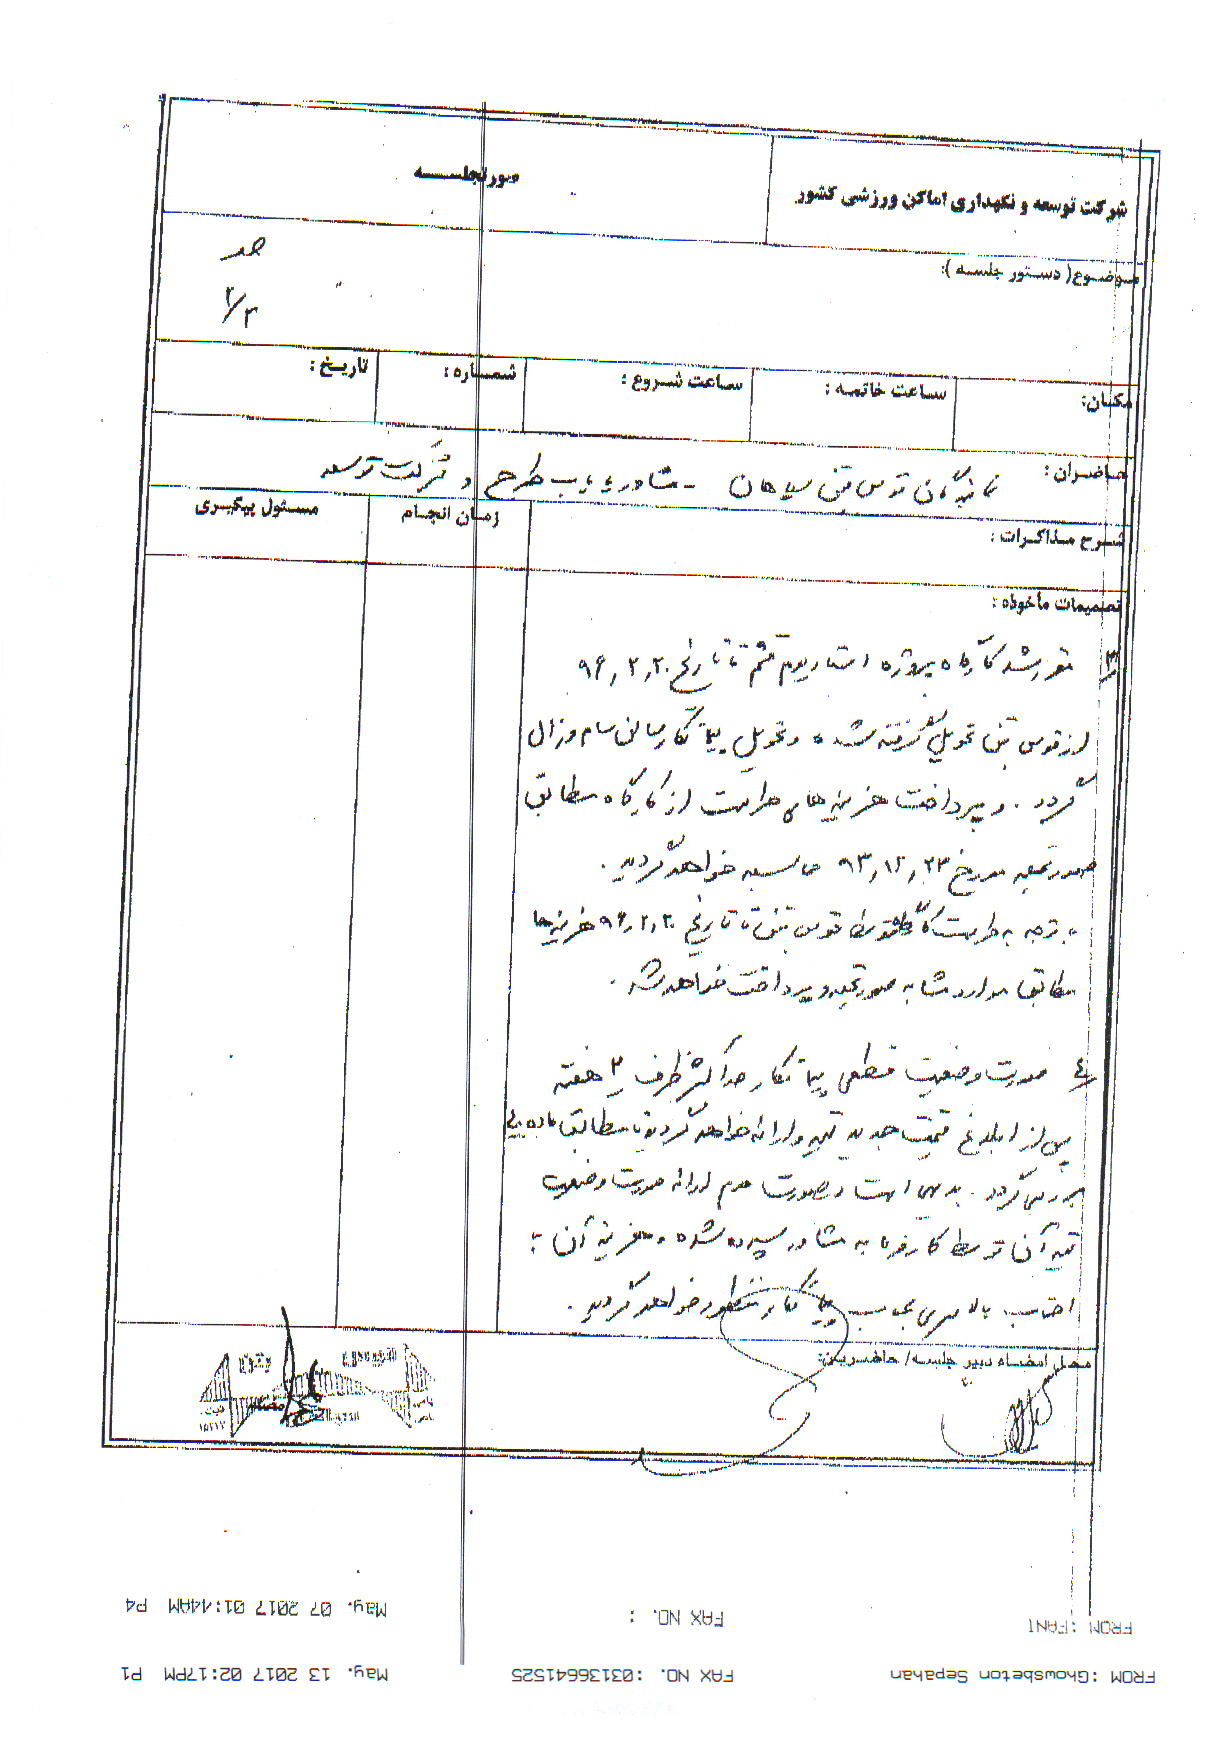 شرکت توسعه و نگهداری اماکن ورزشی کشور
صورتجلسه
موضوع( دستور جلسه ):
۲/۳
مکان:
ساعت خاتمه :
ساعت شروع :
شماره :
تاریخ :
حاضران : نمایندگان قوس بتن سپاهان - مشاور طرح و شرکت توسعه
شرح مذاکرات :
زمان انجام
مسئول پیگیری
تصمیمات مأخوذه :
۳/ مقرر شد کارگاه پروژه استادیوم قشم تا تاریخ ۹۶,۲,۲۰
از قوس بتن تحویل گرفته شده و تحویل پیمانکار سام وزال
گردد . و پرداخت هزینه های حراست از کارگاه مطابق
صورتجلسه مورخ ۹۳,۱۲,۲۳ محاسبه خواهد گردید .
با توجه به حراست کارگاه توسط قوس بتن تا تاریخ ۹۶,۲,۲۰ هزینه ها
مطابق موارد مشابه صورتجلسه و پرداخت خواهد شد .
۴/ صورت وضعیت قطعی پیمانکار حداکثر ظرف ۲ هفته
پس از ابلاغ قیمت جدید تهیه و ارائه خواهد گردید تا مطابق ماده
بررسی گردد . بدیهی است در صورت عدم ارائه صورت وضعیت
تهیه آن توسط کارفرما به مشاور سپرده شده و هزینه آن با
احتساب بالاسری بحساب پیمانکار منظور خواهد گردید .
محل امضاء دبیر جلسه/ حاضرین:
قوس بتن
FROM :FANI
FAX NO. :
May. 07 2017 01:44AM P4
FROM :Ghowsbeton Sepahan
FAX NO. :03136641525
May. 13 2017 02:17PM P1